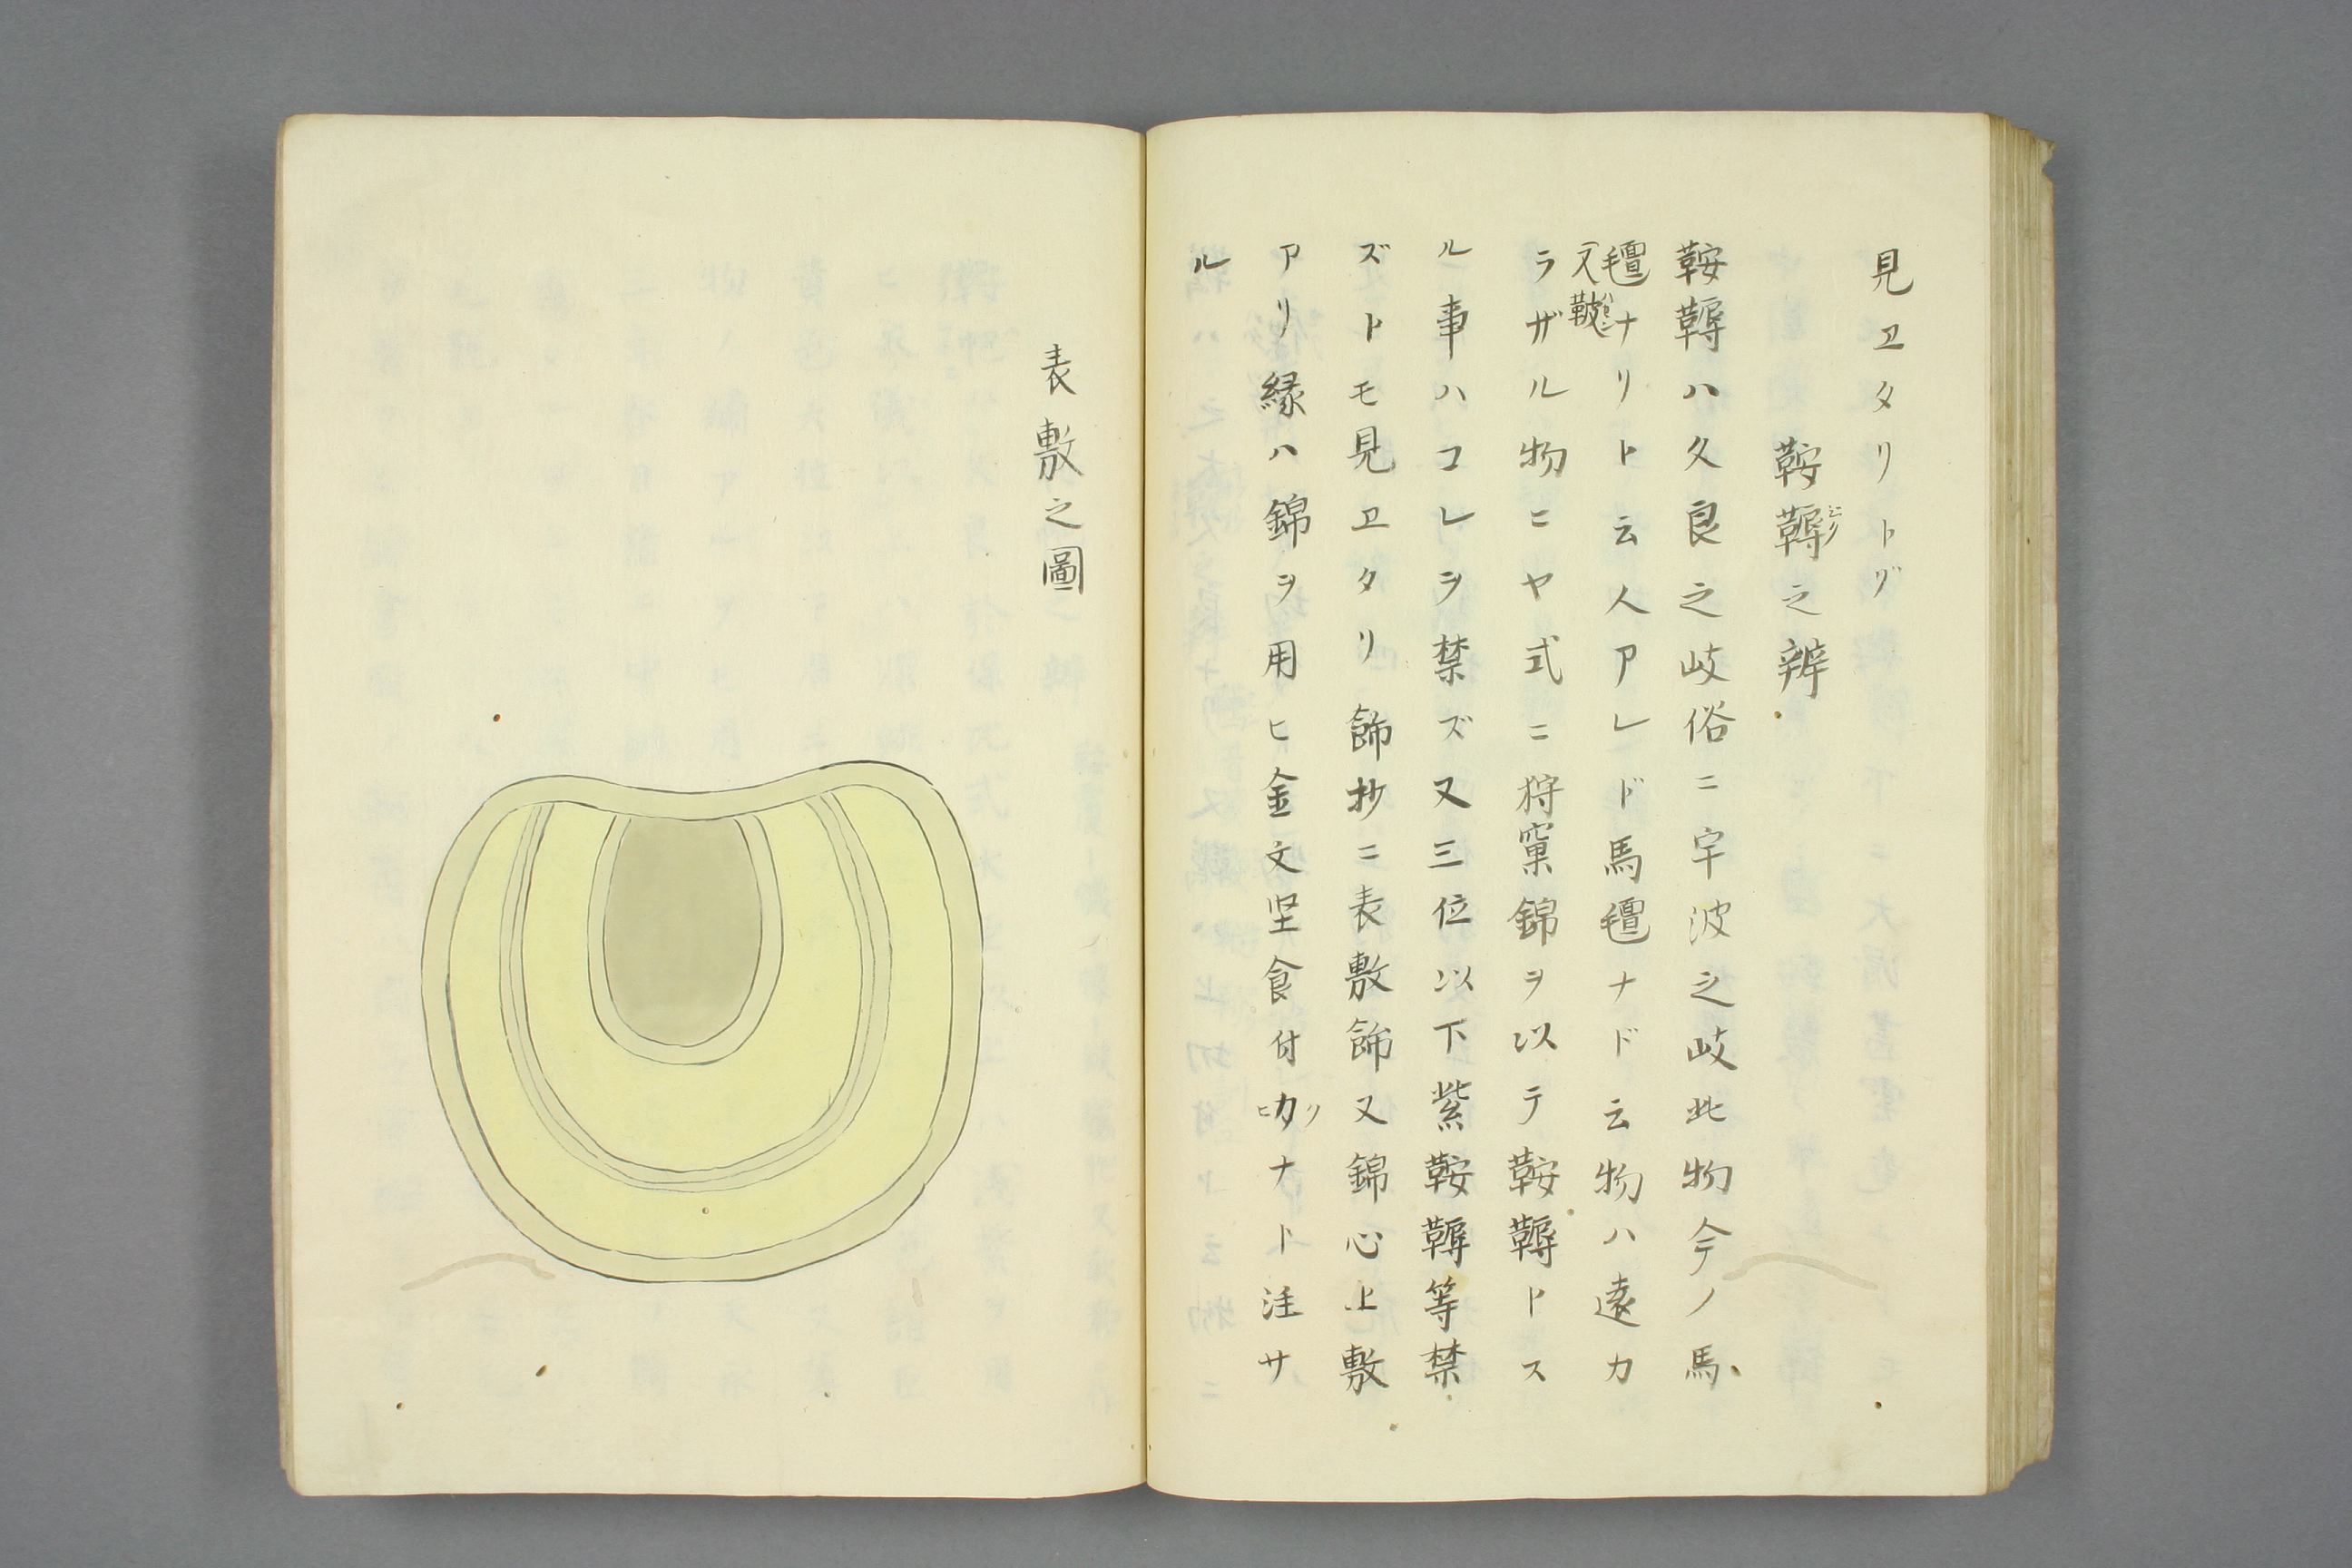 見ヱタリトゾ
鞍韉之辨
鞍韉ハ久良之岐俗ニ宇波之岐此物今ノ馬
氊ナリト云人アレド馬氊ナド云物ハ遠カ
又鞍
ラザル物ニヤ式ニ狩窠錦ヲ以テ鞍韉トス
ル事ハコレヲ禁ズ又三位以下紫鞍韉等禁
ズトモ見ヱタリ飾抄ニ表敷飾又錦心上敷
アリ縁ハ錦ヲ用ヒ金文坚食付ナト注サ
ル
表敷之圖